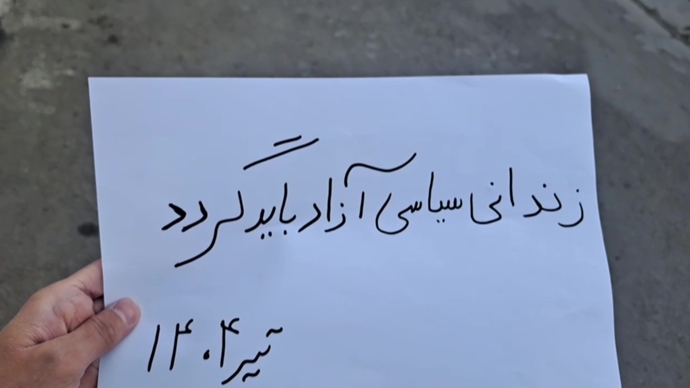 زندانی سیاسی آزاد باید گردد
تیر ۱۴۰۴